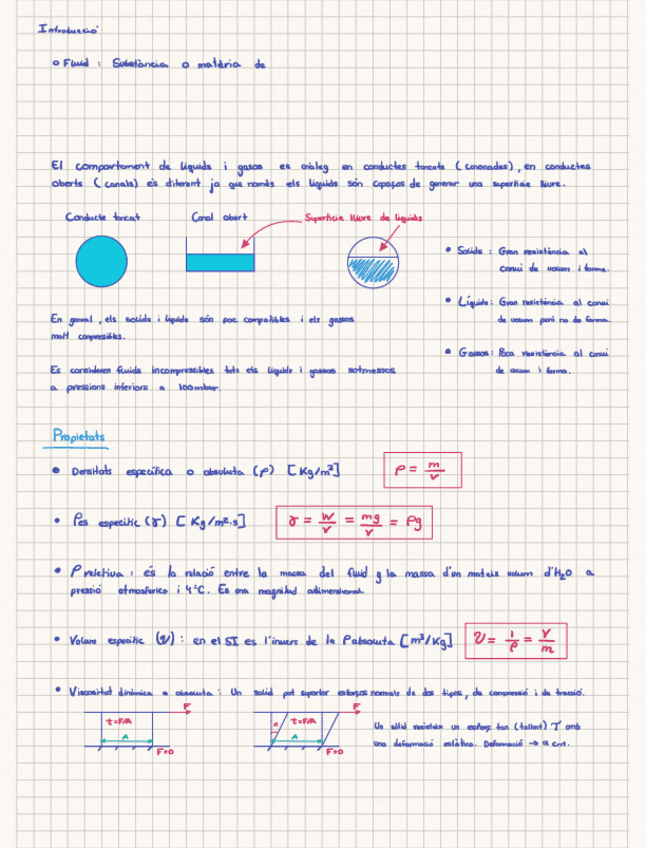 Introducció
o Fluid : Substància o matèria de
El comportament de líquids i gasos es anàleg en conductes tancats (canonades), en conductes
oberts (canals) és diferent ja que només els líquids són capaços de generar una superfície lliure.
Conducte tancat Canal obert Superfície lliure de líquids
• Solids : Gran resistència al
canvi de volum i forma.
• Líquids: Gran resistència al canvi
de volum però no de forma.
En general, els solids i líquids són poc compatibles i els gasos
molt compressibles.
• Gasos: Poca resistència al canvi
de volum i forma.
Es consideren fluids incompressibles tots els líquids i gasos sotmesos
a pressions inferiors a 100mbar.
Propietats
• Densitats específica o absoluta (ρ) [Kg/m³] ρ = m/v
• Pes específic (γ) [Kg/m²·s] γ = W/v = mg/v = ρg
• ρ reletiva : és la relació entre la massa del fluid y la massa d'un mateix volum d'H₂O a
pressió atmosfèrica i 4°C. Es una magnitud adimensional.
• Volum específic (v) : en el SI es l'invers de la ρ absoluta [m³/Kg] v = 1/ρ = V/m
• Viscositat dinàmica o absoluta : Un solid pot suportar esforços normals de dos tipus, de compressió i de tracció.
F F
t=F/A α t=F/A
A A
F=0 F=0
Un sòlid resisteix un esforç tan (tallant) T amb
una deformació elàstica. Deformació → α cnt.